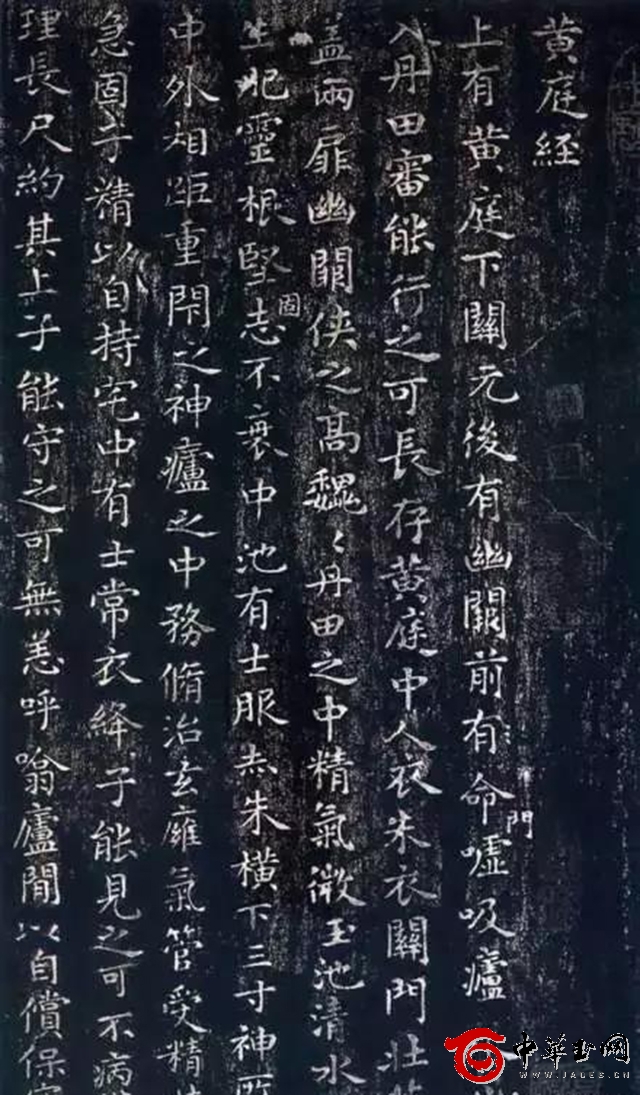 黄庭經
上有黄庭下關元後有幽闕前有命門噓吸廬
入丹田審能行之可長存黄庭中人衣朱衣關門壯
盖兩扉幽闕侠之高魏〻丹田之中精氣微玉池清水
生肥靈根堅志固不衰中池有士服赤朱横下三寸神所
中外相距重閇之神廬之中務脩治玄膺氣管受精
急固子精以自持宅中有士常衣絳子能見之可不病
理長尺約其上子能守之可無恙呼噏廬間以自償保
中華書网
WWW.JACES.CN